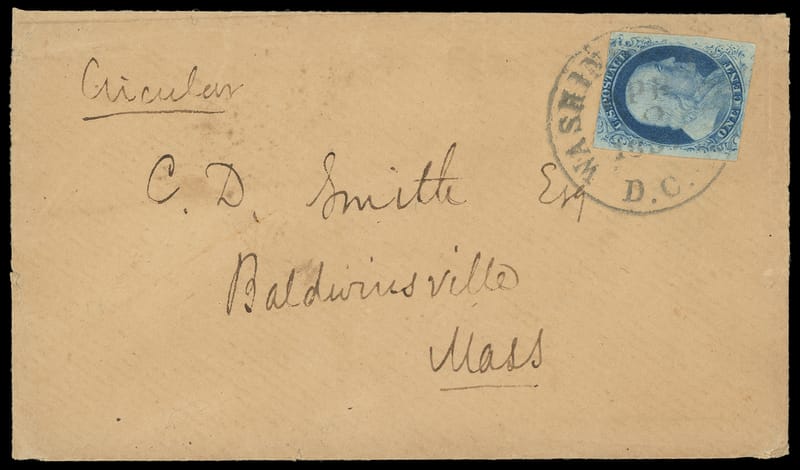 Circular
U.S. POSTAGE
ONE CENT
WASHIN
D.C.
C. D. Smith Esq
Baldwinsville
Mass